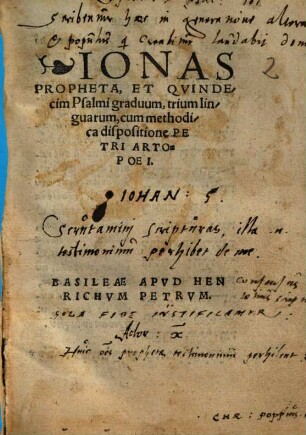 Scribentur hæc in generatione altera
& populus q creabitur laudabit dom
IONAS 2
PROPHETA, ET QVINDE-
cim Psalmi graduum, trium lin-
guarum, cum methodi-
ca dispositione PE
TRI ARTO-
POEI.
IOHAN: 5.
Scrutamini scripturas, illa
testimonium perhibet de me.
BASILEAE APVD HEN
RICHVM PETRVM.
SOLA FIDE IUSTIFICAMUR.
Actor: X
Huic oēs prophetæ testimonium perhibent
CHR: